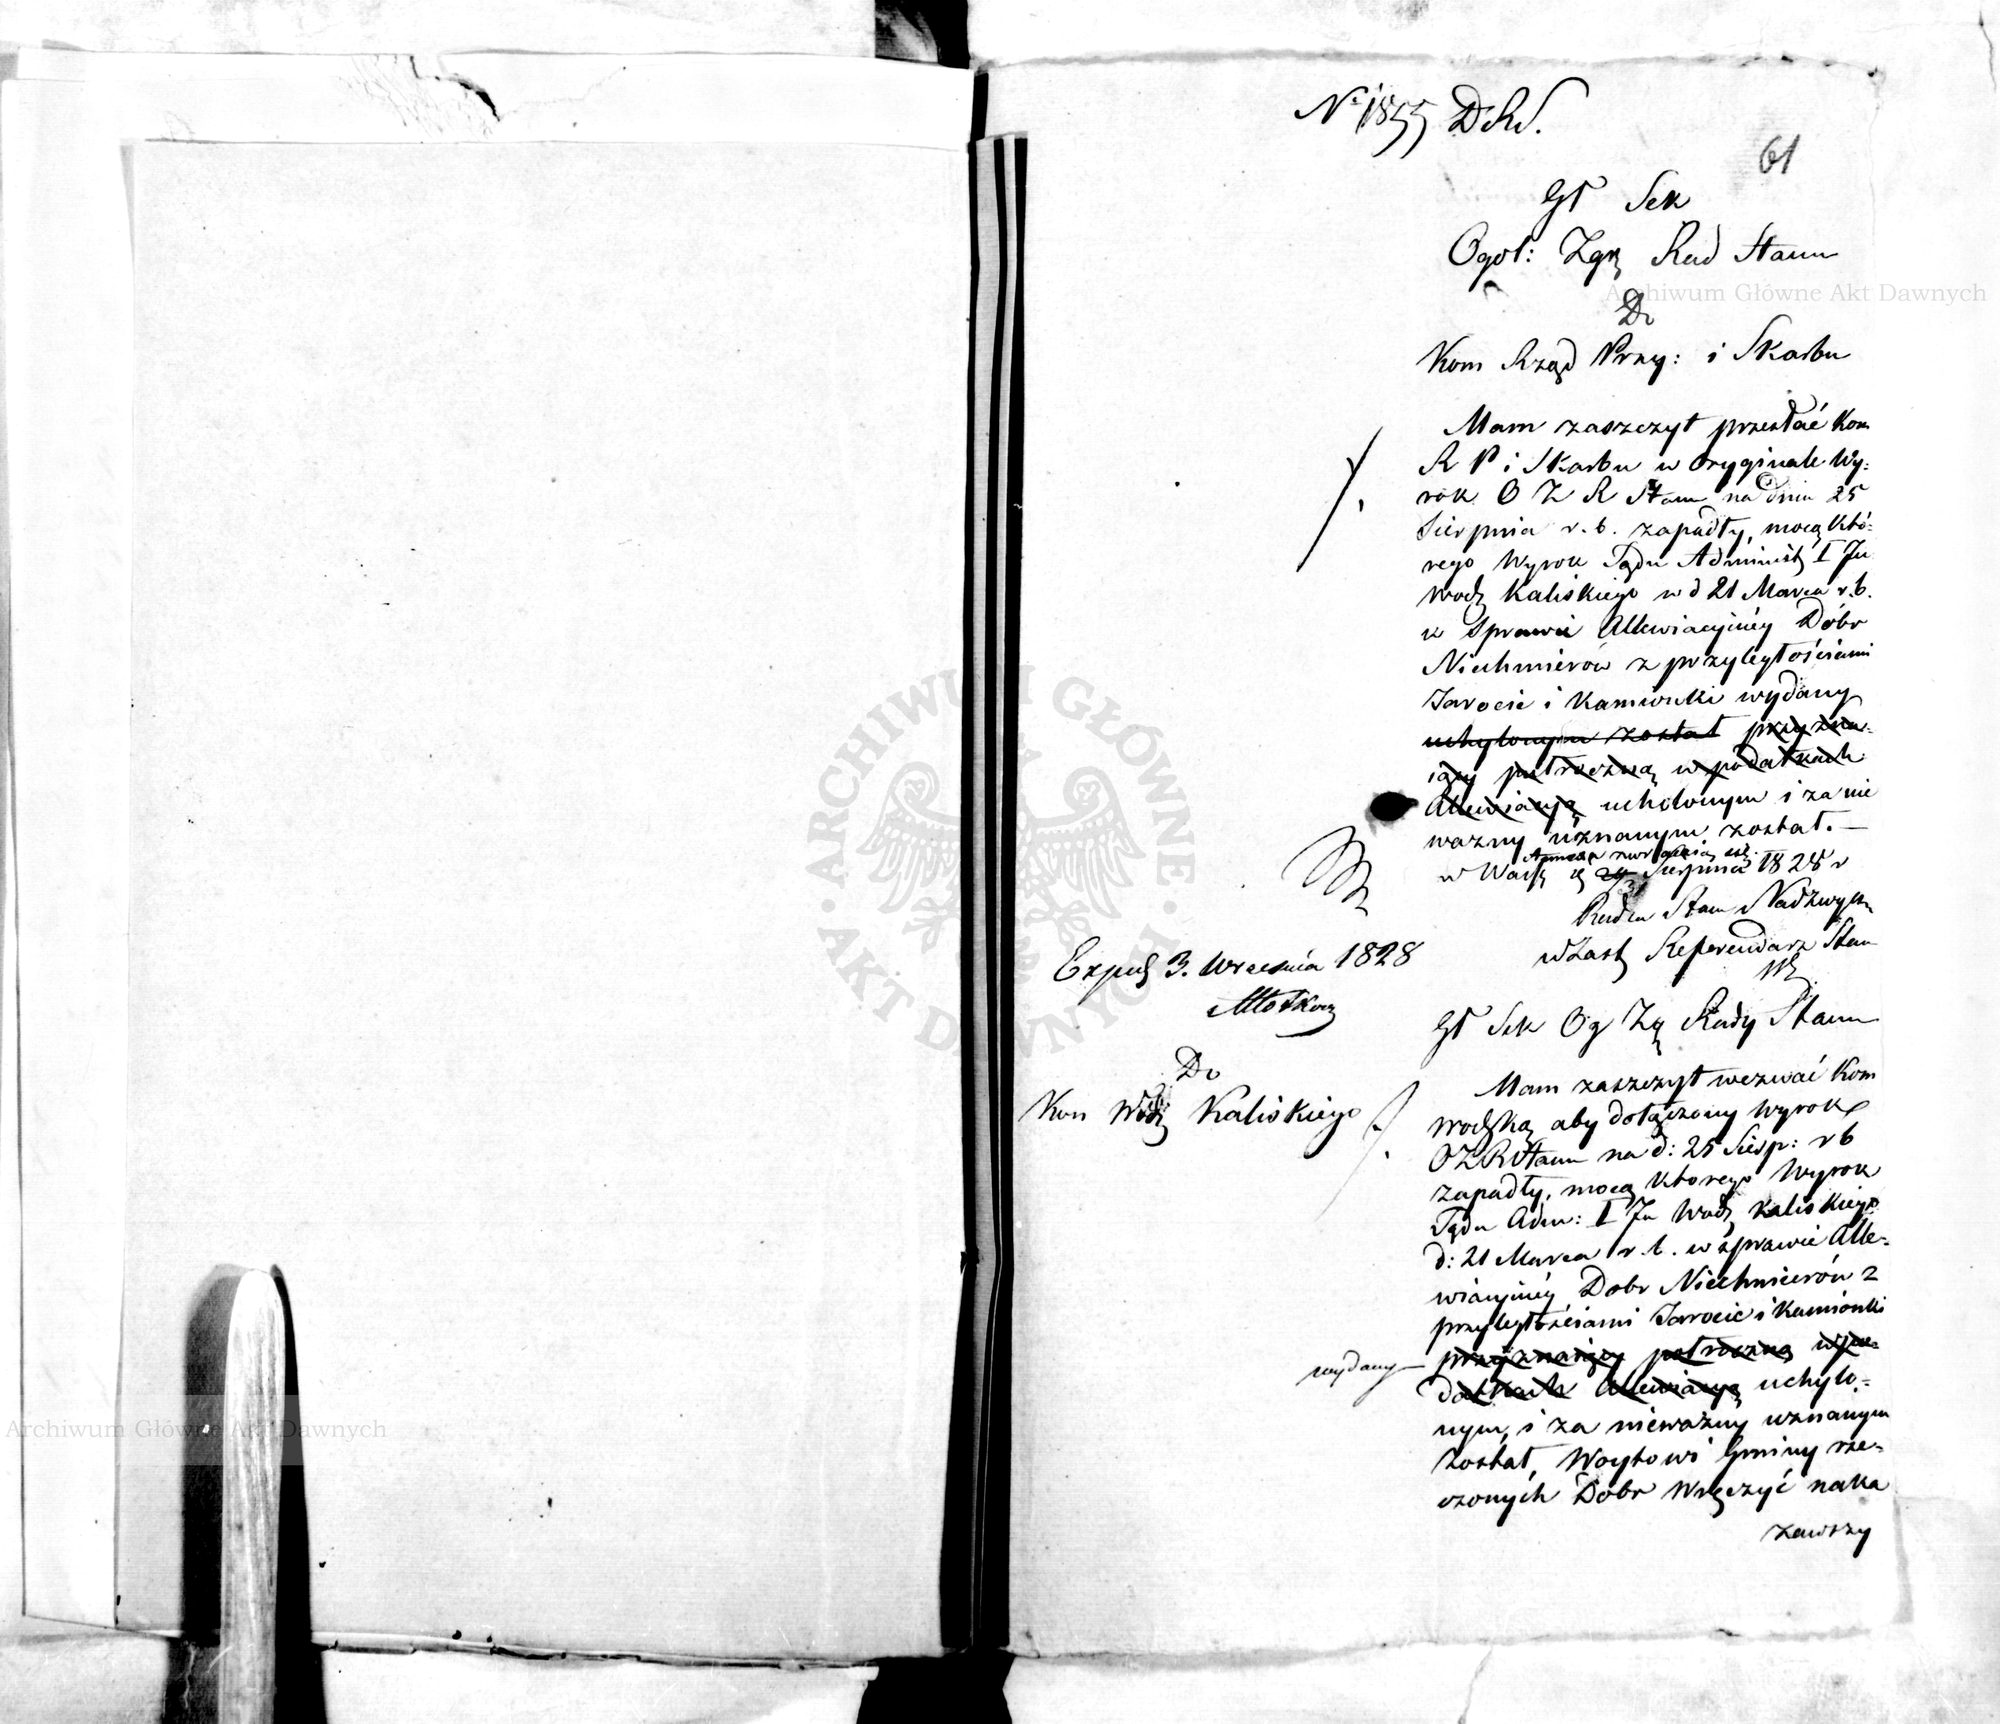 № 1855 DRS.
61
Gł Sek
Ogol: Zgr Rad Stanu
Do
Kom Rząd Przy: i Skarbu
Mam zaszczyt przesłać Kom
R P i Skarbu w oryginale Wy-
rok O Z R Stanu na dniu 25
Sierpnia r. b. zapadły, mocą któ-
rego Wyrok Sądu Administ I In
Wodz Kaliskiego w d 21 Marca r. b.
w Sprawie Allewiacyiney Dóbr
Niechmierów z przyległościami
Jarocie i Kamionki wydany
uchylonym został przyzna-
iący półroczną w podatkach
Allewiacyą uchylonym i za nie
ważny uznanym został. —
w Warsz d 29 31 Sierpnia 1828 r
Radca Stanu Nadzwycz
w Zast Referendarz Stanu
Exped 3. Września 1828
Do
Kom Wodz Kaliskiego
Gł Sek Og Zg Rady Stanu
Mam zaszczyt wezwać Kom
Wodzką aby dołączony Wyrok
OZRStanu na d: 25 Sierp: r b
zapadły, mocą ktorego Wyrok
Sądu Adm: I In Wodz Kaliskiego
d: 21 Marca r. b. w sprawie Alle-
wiacyiney Dobr Niechmierów z
przyległościami Jarocie i Kamionki
wydany
przyznaiący połroczną w po-
datkach Allewiacyą uchylo-
nym, i za nieważny uznanym
został, Woytowi Gminy rze-
czonych Dobr wręczyć naka
zawszy
ARCHIWUM GŁÓWNE AKT DAWNYCH
Archiwum Główne Akt Dawnych
Archiwum Główne Akt Dawnych